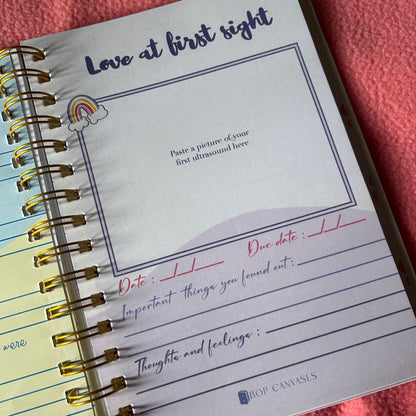 Love at first sight
Paste a picture of your
first ultrasound here
Date : __/__/__
Due date : __/__/__
Important things you found out :
were
Thoughts and feelings :
BOP CANVASES